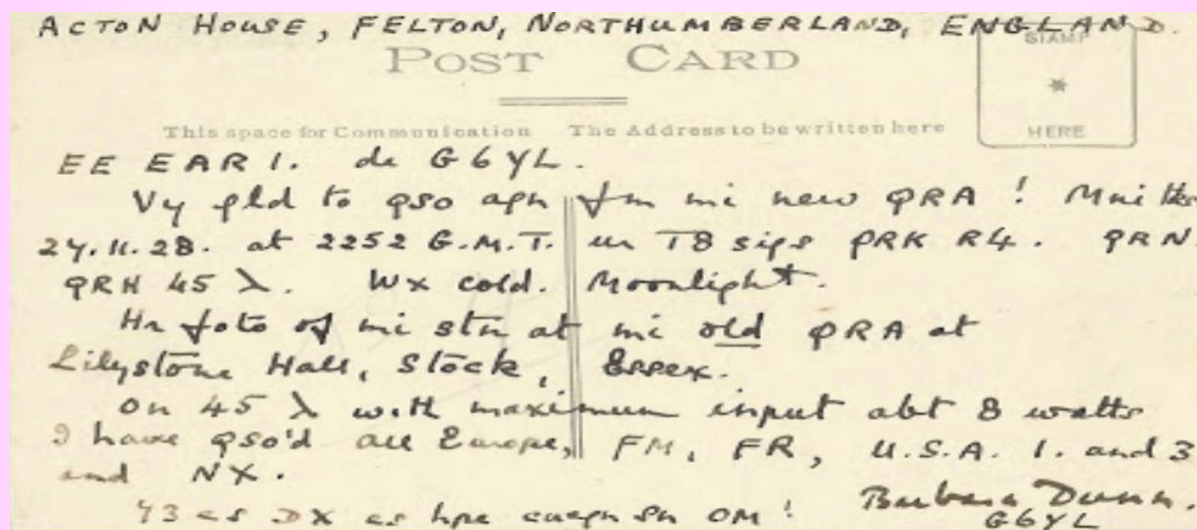 ACTON HOUSE, FELTON, NORTHUMBERLAND, ENGLAND.
STAMP
POST CARD
*
This space for Communication The Address to be written here
HERE
EE EAR1. de G6YL.
Vy gld to qso agn fm mi new QRA! Mni tks
27.11.28. at 2252 G.M.T. ur T8 sigs QRK R4. QRN
QRH 45 λ. Wx cold. Moonlight.
Hr foto of mi stn at mi old QRA at
Lilystone Hall, Stock, Essex.
On 45 λ with maximum input abt 8 watts
I have qso'd all Europe, FM, FR, U.S.A. 1. and 3
and NX.
73 es DX es hpe cuagn sn OM!
Barbara Dunn.
G6YL